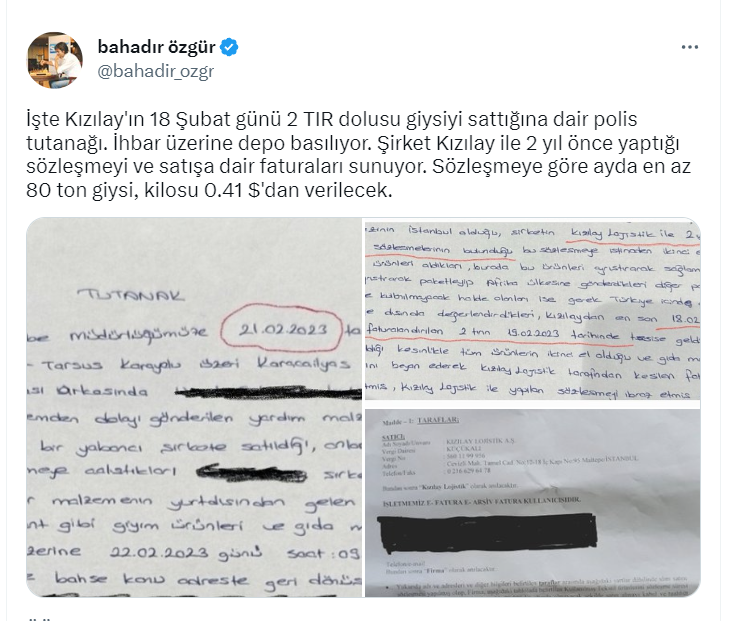 bahadır özgür
@bahadir_ozgr
İşte Kızılay'ın 18 Şubat günü 2 TIR dolusu giysiyi sattığına dair polis
tutanağı. İhbar üzerine depo basılıyor. Şirket Kızılay ile 2 yıl önce yaptığı
sözleşmeyi ve satışa dair faturaları sunuyor. Sözleşmeye göre ayda en az
80 ton giysi, kilosu 0.41 $'dan verilecek.
TUTANAK
be müdürlüğümüze 21.02.2023 ta
- Tarsus Karayolu üzeri Karacailyas
ası arkasında
emden dolayı gönderilen yardım malz
bir yabancı şirkete satıldığı, onla
meye çalıştıkları şirke
r malzemenin yurtdışından gelen
nt gibi giyim ürünleri ve gıda m
zerine 22.02.2023 günü saat:09
e bahse konu adreste geri dönüş
zinin İstanbul olduğu, şirketin Kızılay Lojistik ile 2
sözleşmelerinin bulunduğu bu sözleşmeye istinaden ikinci e
ürünleri aldıkları, burada bu ürünleri ayrıştırarak sağlam
nştırarak paketleyip Afrika ülkesine gönderdikleri diğer p
e kullanılmayacak halde olanları ise gerek Türkiye
e dışında değerlendirdikleri, Kızılaydan en son 18.02
faturalandırılan 2 tırın 19.02.2023 tarihinde tesise geld
dığı kesinlikle tüm ürünlerin ikinci el olduğu ve gıda m
ını beyan ederek Kızılay Lojistik tarafından kesilen fat
tmiş, Kızılay Lojistik ile yapılan sözleşmeyi ibraz etmiş
Madde - 1: TARAFLAR;
SATICI:
Adı Soyadı/Unvanı : KIZILAY LOJİSTİK A.Ş.
Vergi Dairesi : KÜÇÜKYALI
Vergi No
Adres : Cevizli Mah. Tansel Cad. No:15-18 İç Kapı No:95 Maltepe/İSTANBUL
Telefon/Faks : 0 216 629 64 78
Bundan sonra "Kızılay Lojistik" olarak anılacaktır.
İŞLETMEMİZ E- FATURA E- ARŞİV FATURA KULLANICISIDIR.
Telefon/e-mail
Bundan sonra "Firma" olarak anılacaktır.